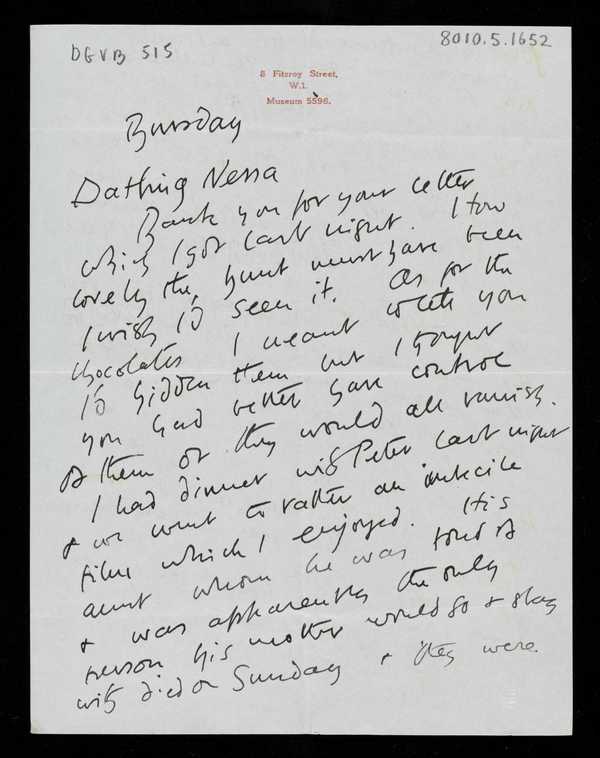 DGVB 515
8010.5.1652
8 Fitzroy Street,
W.1.
Museum 5596.
Thursday
Darling Nessa
Thank you for your letter
which I got last night. How
lovely the hunt must have been
I wish I'd seen it. As for the
chocolates I meant you
I'd hidden them but I thought
you had better have control
of them or they would all vanish.
I had dinner with Peter last night
& we went to rather an imbecile
film which I enjoyed. His
aunt whom he was fond of
& was apparently the only
person his mother would go & stay
with died on Sunday & they were